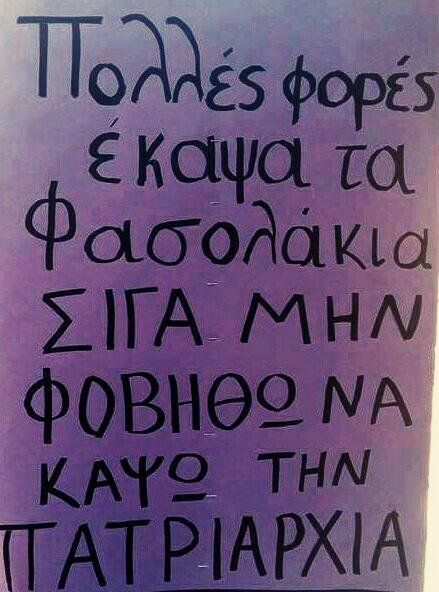 Πολλές φορές
έκαψα τα
Φασολάκια
ΣΙΓΑ ΜΗΝ
ΦΟΒΗΘΩ ΝΑ
ΚΑΨΩ ΤΗΝ
ΠΑΤΡΙΑΡΧΙΑ